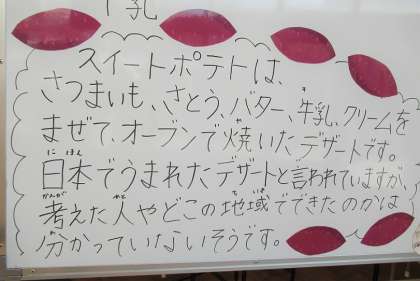 牛乳
スイートポテトは、
さつまいも、さとう、バター、牛乳、クリームを
まぜて、オーブンで焼いたデザートです。
日本でうまれたデザートと言われていますが、
考えた人やどこの地域でできたのかは
分かっていないそうです。